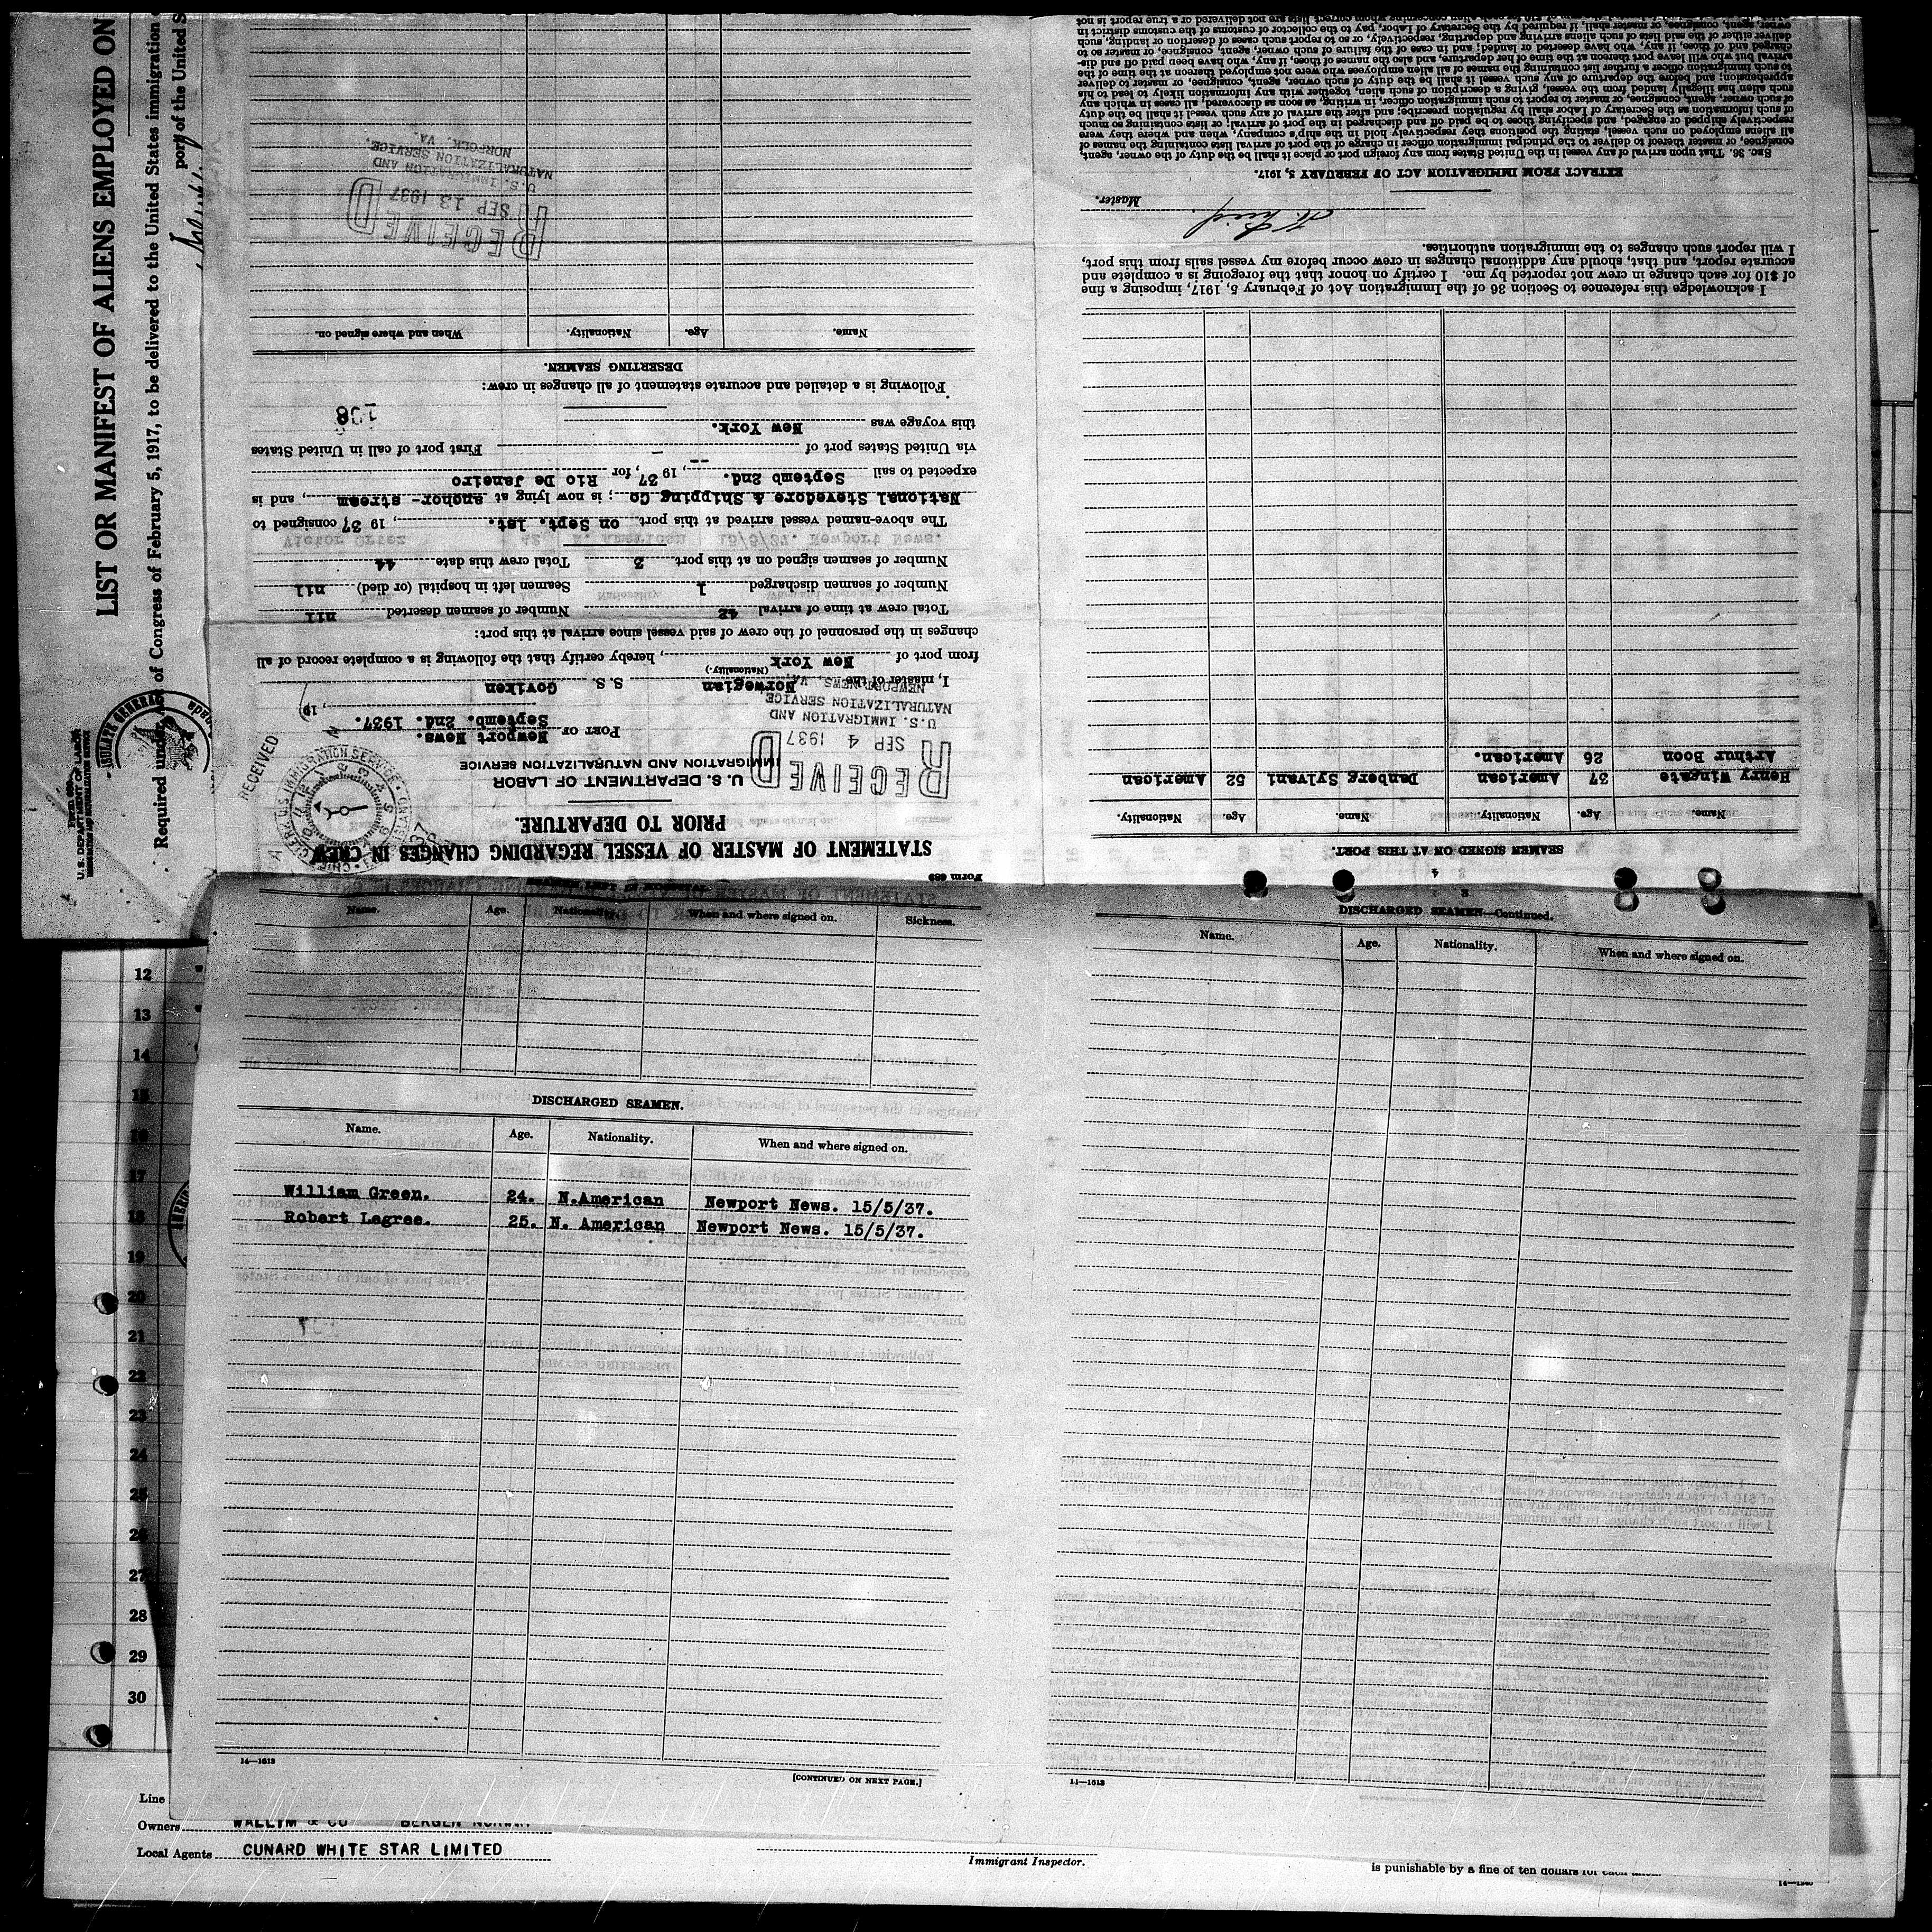 LIST OR MANIFEST OF ALIENS EMPLOYED ON
of Congress of February 5, 1917, to be delivered to the United States immigration
Required under
port of the United S
U.S. DEPARTMENT OF LABOR
Form 689
STATEMENT OF MASTER OF VESSEL REGARDING CHANGES IN CREW
PRIOR TO DEPARTURE.
U. S. DEPARTMENT OF LABOR
IMMIGRATION AND NATURALIZATION SERVICE
RECEIVED
SEP 4 1937
U.S. IMMIGRATION AND
NATURALIZATION SERVICE
NEWPORT NEWS, VA.
RECEIVED
PORT OF Newport News.
Septemb. 2nd. 1937.
I, master of the Norwegian S. S. Goviken
(Nationality.)
from port of New York, hereby certify that the following is a complete record of all
changes in the personnel of the crew of said vessel since arrival at this port:
Total crew at time of arrival 42 Number of seamen deserted nil
Number of seamen discharged 1 Seamen left in hospital (or died) nil
Number of seamen signed on at this port 3 Total crew this date 44
The above-named vessel arrived at this port on Sept. 1st., 1937 consigned to
National Stevedore & Shipping Co; is now lying at anchor- stream, and is
expected to sail Septemb 2nd. --, 1937, for Rio De Janeiro
via United States port of - First port of call in United States
this voyage was New York.
138
Following is a detailed and accurate statement of all changes in crew:
DESERTING SEAMEN.
Name. Age. Nationality. When and where signed on.
RECEIVED
SEP 13 1937
U.S. IMMIGRATION AND
NATURALIZATION SERVICE,
NORFOLK, VA.
SEAMEN SIGNED ON AT THIS PORT.
Name. Age. Nationality. Name. Age. Nationality.
Henry Wingate 37 American Danberg Sylvani 52 American
Arthur Boon 26 American.
I acknowledge this reference to Section 36 of the Immigration Act of February 5, 1917, imposing a fine
of $10 for each change in crew not reported by me. I certify on honor that the foregoing is a complete and
accurate report, and that, should any additional changes in crew occur before my vessel sails from this port,
I will report such changes to the immigration authorities.
Master.
EXTRACT FROM IMMIGRATION ACT OF FEBRUARY 5, 1917.
SEC. 36. That upon arrival of any vessel in the United States from any foreign port or place it shall be the duty of the owner, agent,
consignee, or master thereof to deliver to the principal immigration officer in charge of the port of arrival lists containing the names of
all aliens employed on such vessel, stating the positions they respectively hold in the ship's company, when and where they were
respectively shipped or engaged, and specifying those to be paid off and discharged in the port of arrival; or lists containing so much
of such information as the Secretary of Labor shall by regulation prescribe; and after the arrival of any such vessel it shall be the duty
of such owner, agent, consignee, or master to report to such immigration officer, in writing, as soon as discovered, all cases in which any
such alien has illegally landed from the vessel, giving a description of such alien, together with any information likely to lead to his
apprehension; and before the departure of any such vessel it shall be the duty of such owner, agent, consignee, or master to deliver
to such immigration officer a further list containing the names of all alien employees who were not employed thereon at the time of the
arrival but who will leave port thereon at the time of her departure, and also the names of those, if any, who have been paid off and dis-
charged and of those, if any, who have deserted or landed; and in case of the failure of such owner, agent, consignee, or master so to
deliver either of the said lists of such aliens arriving and departing, respectively, or so to report such cases of desertion or landing, such
owner, agent, consignee, or master shall, if required by the Secretary of Labor, pay to the collector of customs of the customs district in
Name. Age. Nationality. When and where signed on. Sickness.
DISCHARGED SEAMEN.
Name. Age. Nationality. When and where signed on.
William Green. 24. N.American Newport News. 15/5/37.
Robert Legree. 25. N. American Newport News. 15/5/37.
14—1613
[CONTINUED ON NEXT PAGE.]
DISCHARGED SEAMEN—Continued.
Name. Age. Nationality. When and where signed on.
14—1613
12
13
14
15
16
17
18
19
20
21
22
23
24
25
26
27
28
29
30
Line
Owners WALLEM & CO BERGEN NORWAY
Local Agents CUNARD WHITE STAR LIMITED
Immigrant Inspector.
is punishable by a fine of ten dollars for each alien.